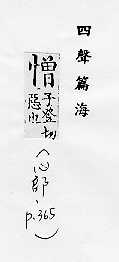 四聲篇海
憎
子登切
(心部, p.365)